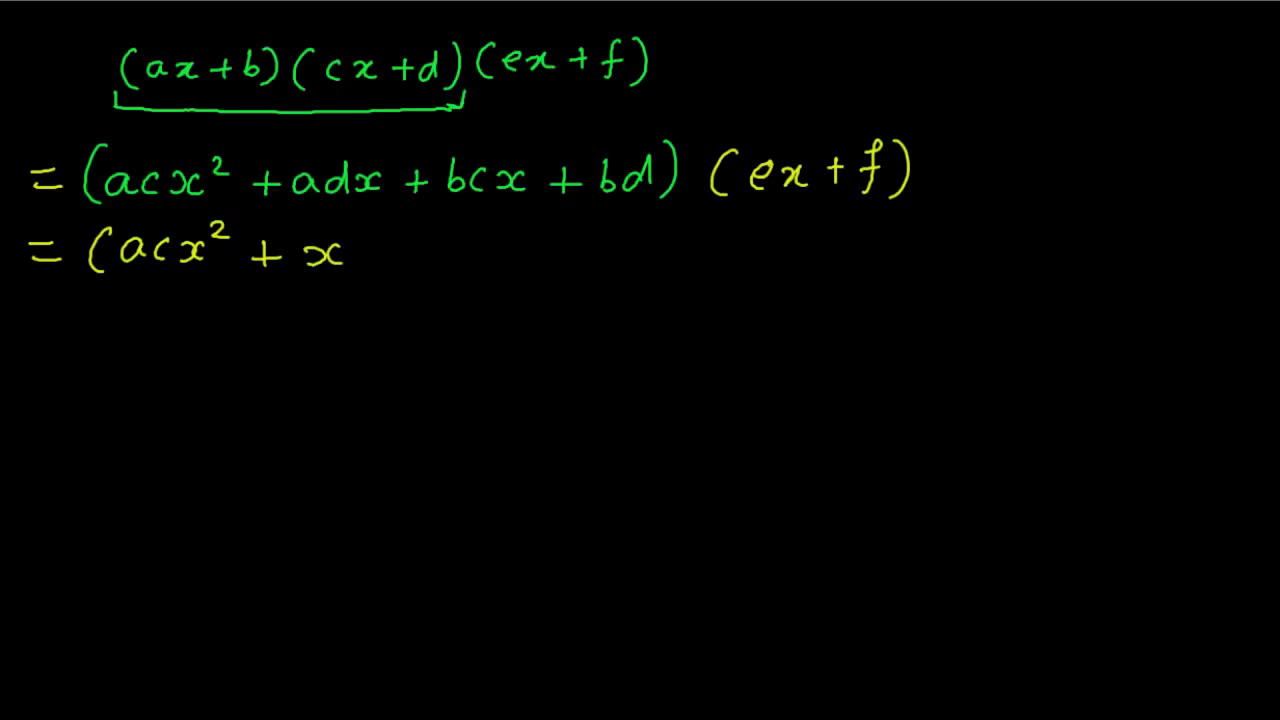 (ax+b)(cx+d)(ex+f)
= (acx² + adx + bcx + bd) (ex+f)
= (acx² + x